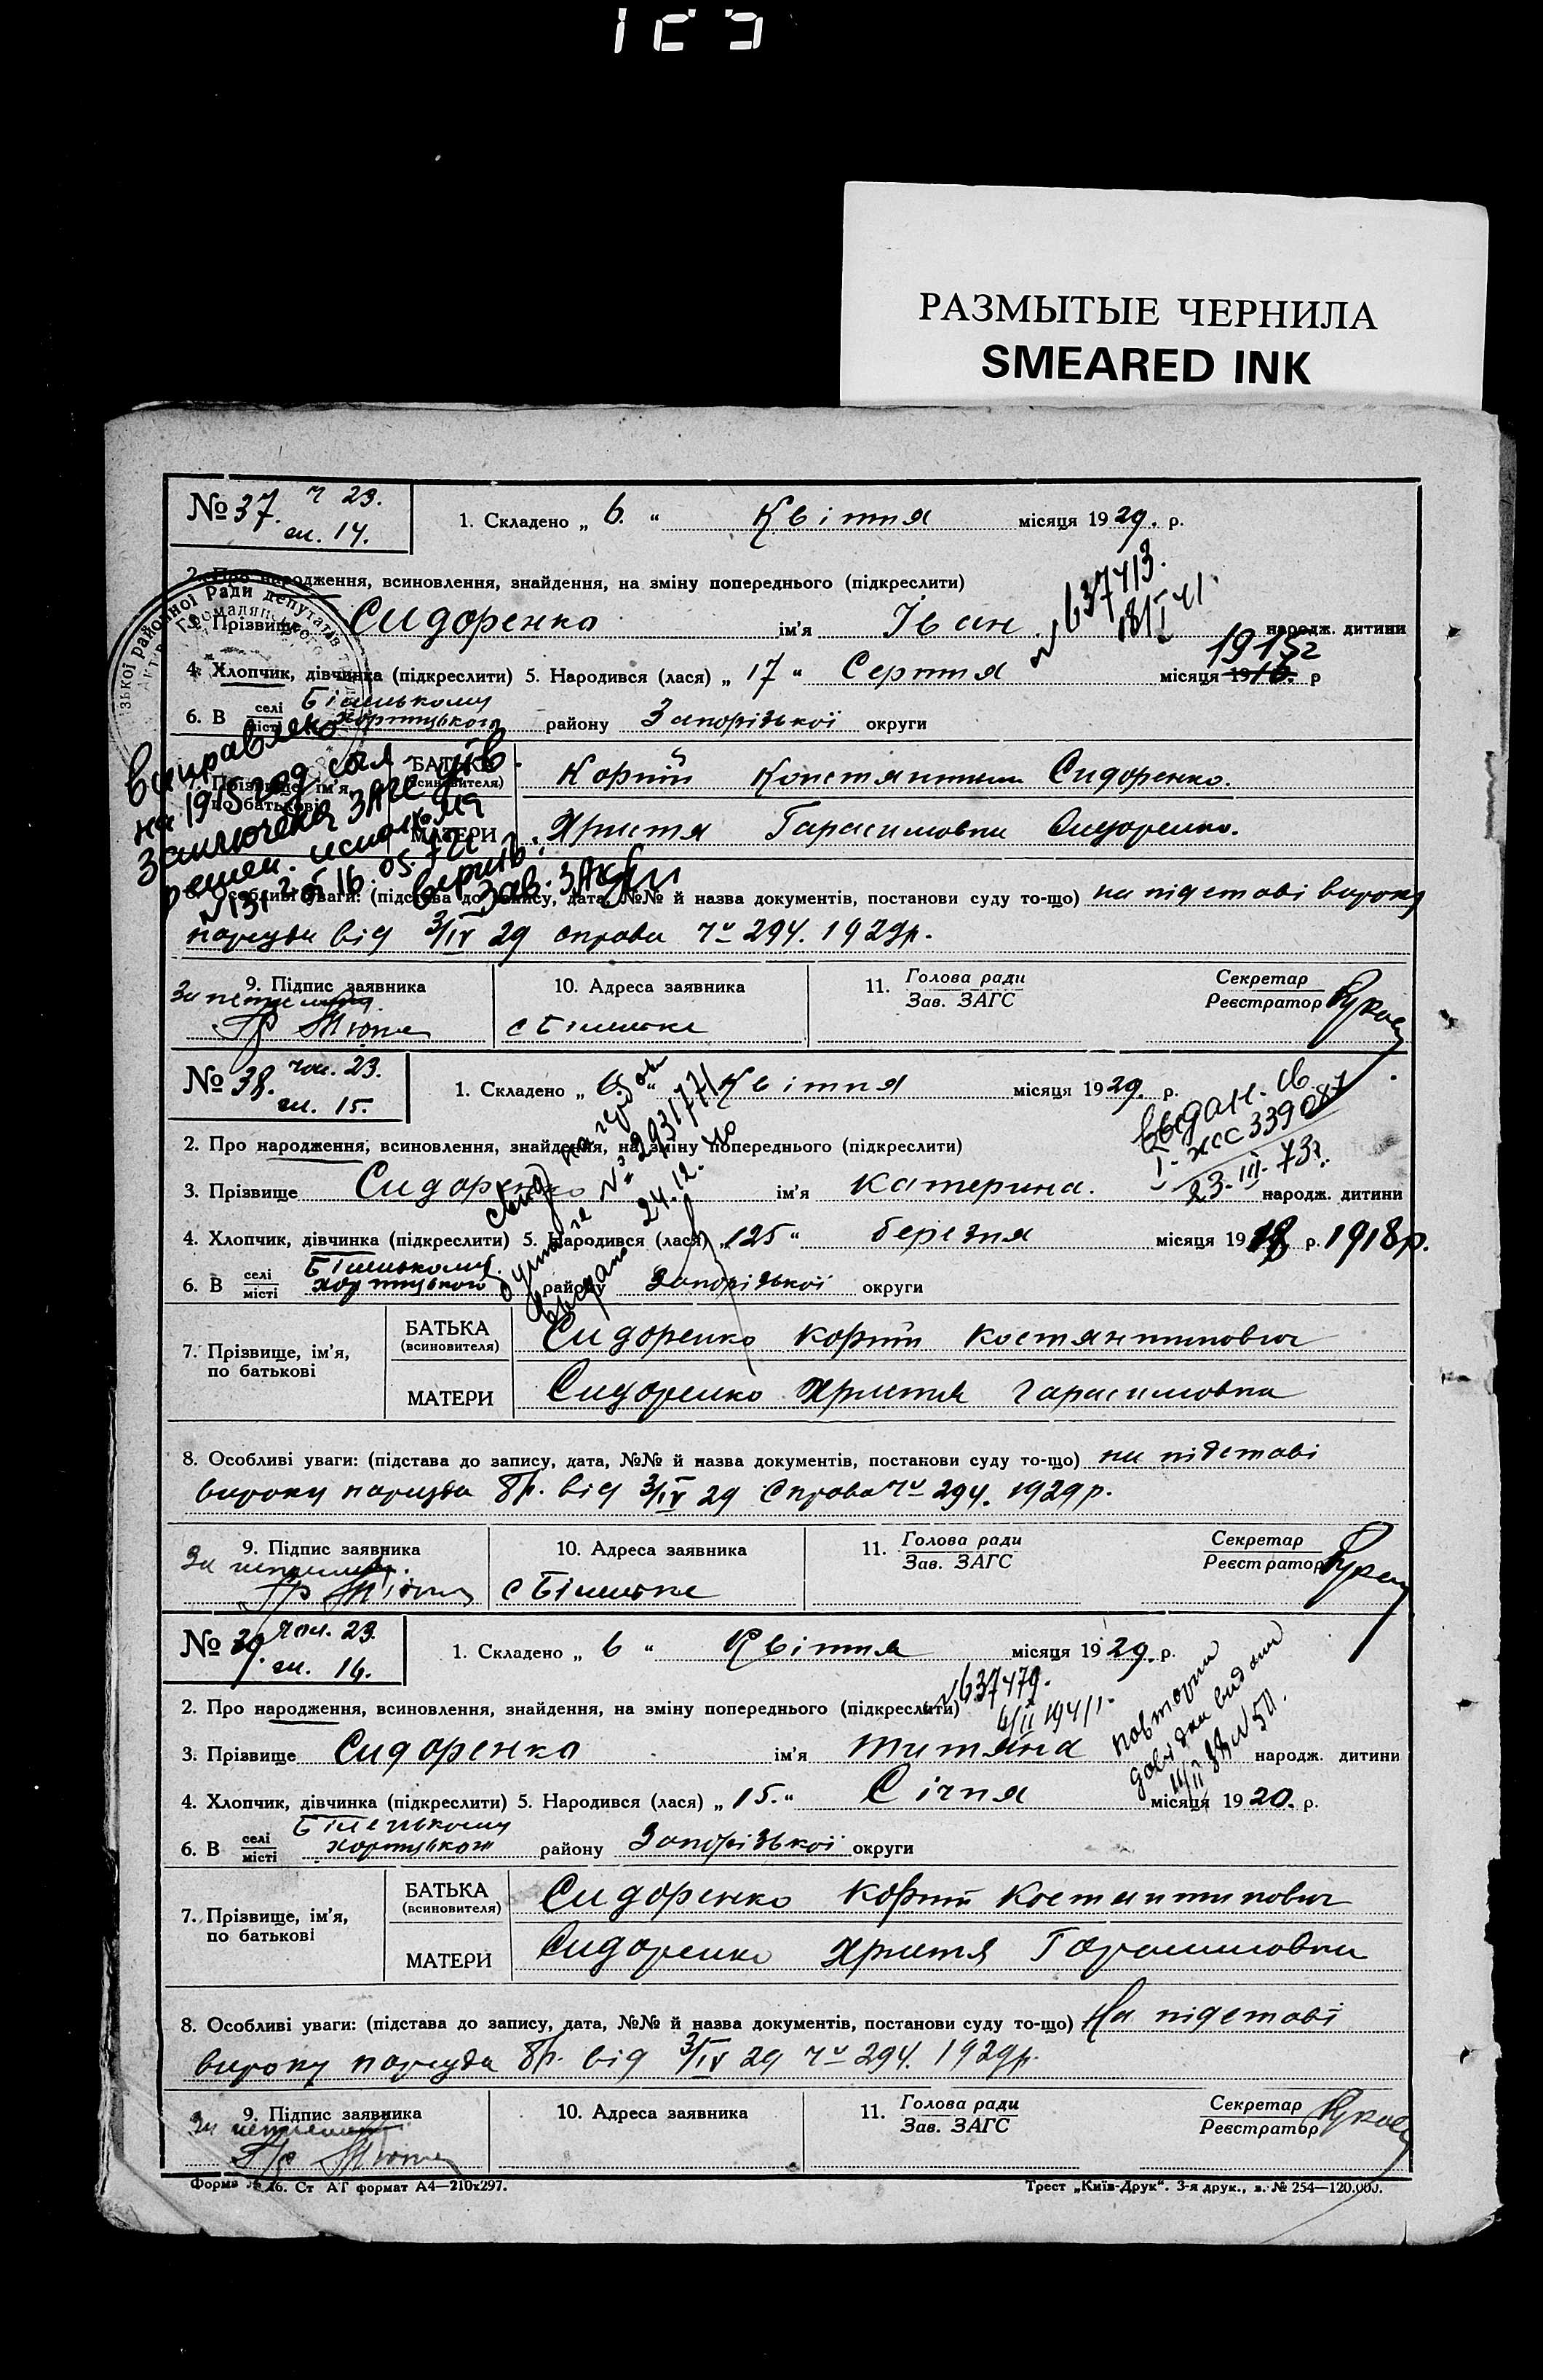 РАЗМЫТЫЕ ЧЕРНИЛА
SMEARED INK
№ 37. ч 23.
ст. 14.
1. Складено „ 6. “ Квітня місяця 1929. р.
2. Про народження, всиновлення, знайдення, на зміну попереднього (підкреслити)
№ 637413.
18/I 41.
3. Прізвище Сидоренко ім'я Іван народж. дитини
1915г
4. Хлопчик, дівчинка (підкреслити) 5. Народився (лася) „ 17 “ Серпня місяця 1916. р
6. В селі місті Біленькому Хортицького району Запорізької округи
7. Прізвище, ім'я, по батькові
БАТЬКА (всиновителя) Корній Константинович Сидоренко.
МАТЕРИ Христя Гарасимовна Сидоренко.
Виправлено
на 1915 год
заключения ЗАГС
решен. исполкома
№ 131 16.05.
Верить:
Зав. ЗАГС
8. Особливі уваги: (підстава до запису, дата, №№ й назва документів, постанови суду то-що) на підставі вироку
нарсуда від 3/IV 29 справа ч 294. 1929р.
9. Підпис заявника
10. Адреса заявника
с Біленьке
11. Голова ради
Зав. ЗАГС
Секретар
Реєстратор
№ 38. 23.
ст. 15.
1. Складено „ 6 “ Квітня місяця 1929. р.
Выдан. св.
339087
23-III-73г.
2. Про народження, всиновлення, знайдення, на зміну попереднього (підкреслити)
3. Прізвище Сидоренко ім'я Катерина. народж. дитини
№ 2931771
24.12.
4. Хлопчик, дівчинка (підкреслити) 5. Народився (лася) „ 25 “ березня місяця 1918 р. 1918р.
6. В селі місті Біленькому Хортицького району Запорізької округи
7. Прізвище, ім'я, по батькові
БАТЬКА (всиновителя) Сидоренко Корній Костянтинович
МАТЕРИ Сидоренко Христя Гарасимовна
8. Особливі уваги: (підстава до запису, дата, №№ й назва документів, постанови суду то-що) на підставі
вироку нарсуда від 3/IV 29 Справа ч 294. 1929р.
9. Підпис заявника
10. Адреса заявника
с Біленьке
11. Голова ради
Зав. ЗАГС
Секретар
Реєстратор
№ 39. 23.
ст. 16.
1. Складено „ 6 “ Квітня місяця 1929. р.
2. Про народження, всиновлення, знайдення, на зміну попереднього (підкреслити)
№ 637479.
II 1941
3. Прізвище Сидоренко ім'я Титяна народж. дитини
4. Хлопчик, дівчинка (підкреслити) 5. Народився (лася) „ 15. “ Січня місяця 1920. р.
6. В селі місті Біленькому Хортицького району Запорізької округи
7. Прізвище, ім'я, по батькові
БАТЬКА (всиновителя) Сидоренко Корній Костянтинович
МАТЕРИ Сидоренко Христя Гарасимовна
8. Особливі уваги: (підстава до запису, дата, №№ й назва документів, постанови суду то-що) На підставі
вироку нарсуда від 3/IV 29 ч 294. 1929р.
9. Підпис заявника
10. Адреса заявника
11. Голова ради
Зав. ЗАГС
Секретар
Реєстратор
Форма № 16. Ст АГ формат А4—210х297.
Трест „Київ-Друк“. 3-я друк., з. № 254—120.000.